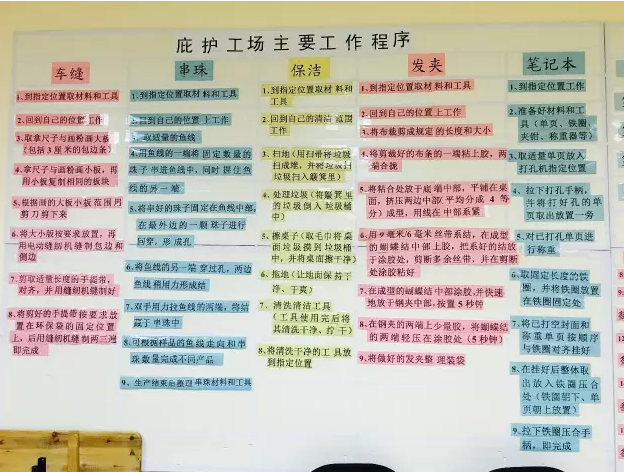 庇护工场主要工作程序
车缝
1、到指定位置取材料和工具
2、回到自己的位置工作
3、取拿尺子与画粉画大板
(包括3厘米的包边条)
4、拿尺子与画粉画小板，再
用小板复制相同的板块
5、根据画的大板小板范围用
剪刀剪下来
6、将大小版按要求放置，再
用电动缝纫机缝制包边和
侧边
7、剪取适量长度的手提带，
对齐，并用缝纫机缝制好
8、将剪好的手提带按要求放置
在环保袋的固定位置
上，后用缝纫机缝制两三遍
即完成
串珠
1、到指定位置取材料和工具
2、回到自己的位置上工作
3、取适量的鱼线
4、用鱼线的一端将固定数量的
珠子串进鱼线中，同时抓住鱼
线的另一端
5、将串好的珠子固定在鱼线中部，
在最外边的一颗珠子进行
回穿，形成孔
6、将鱼线的另一端穿过孔，两边
鱼线稍用力形成结
7、双手用力拉鱼线的两端，将结
藏于串珠中
8、可根据样品的鱼线走向和串
珠数量完成不同产品
9、生产结束后整理串珠材料和工具
保洁
1、到指定位置取材料和
工具
2、回到自己的清洁范围
工作
3、扫地(用扫帚将垃圾
扫成堆，并将垃圾扫
垃圾扫入簸箕里)
4、处理垃圾(将簸箕里
的垃圾倒入垃圾桶
中)
5、擦桌子(取毛巾将桌
面垃圾摸到垃圾桶
中，并将桌面擦干净)
6、拖地(让地面保持干
净、干爽)
7、清洗清洁工具
(工具使用完后将
其清洗干净、拧干)
8、将清洗干净的工具放
到指定位置
发夹
1、到指定位置取材料和工具
2、回到自己的位置上工作
3、将布裁剪成规定的长度和大小
4、将剪裁好的布条的一端粘上胶，两
端合拢
5、将粘合处放于底端中部，平铺在桌
面，挤压两边中部(平均分成4等
分)成型，用线在中部系紧
6、用9毫米6毫米丝带系结，在成型
的蝴蝶结中部上胶，把系好的结放
于涂胶处，剪断多余丝带，并在剪断
处涂胶粘好
7、在成型的蝴蝶结中部涂胶，并快速
地放于钢夹中部，按置5秒钟
8、在钢夹的两端上少量胶，将蝴蝶结
的两端轻压在涂胶处(5秒钟)
9、将做好的发夹整理装袋
笔记本
1、到指定位置取材料和
工具
2、准备好材料和工
具(单页、铁圈、
夹钳、称重器等)
3、取适量单页放入
打孔机指定位置
4、拉下打孔手柄，
并将打好孔的单
页取出放置一旁
5、对已打孔单页进
行称重
6、取固定长度的铁
圈，并将铁圈放置
在铁圈固定处
7、将已打空封面和
称重单页按顺序
与铁圈对齐挂好
8、在挂好后整体取
出放入铁圈压合
处(铁圈朝下、单
页朝上放置)
9、拉下铁圈压合手
柄，即完成